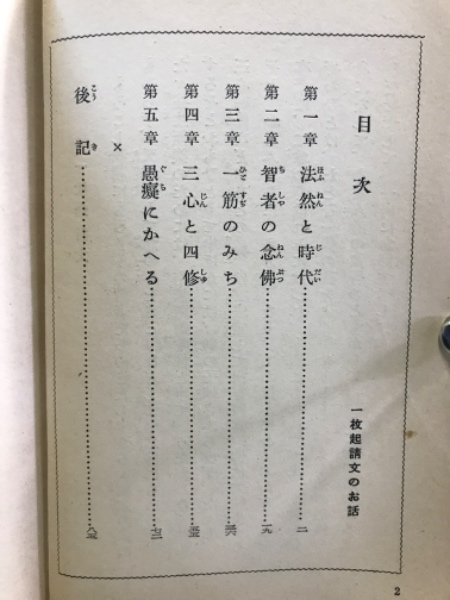 目次
一枚起請文のお話
第一章 法然と時代 二
第二章 智者の念佛 一九
第三章 一筋のみち 三六
第四章 三心と四修 五三
第五章 愚癡にかへる 七三
×
後記 八五
2